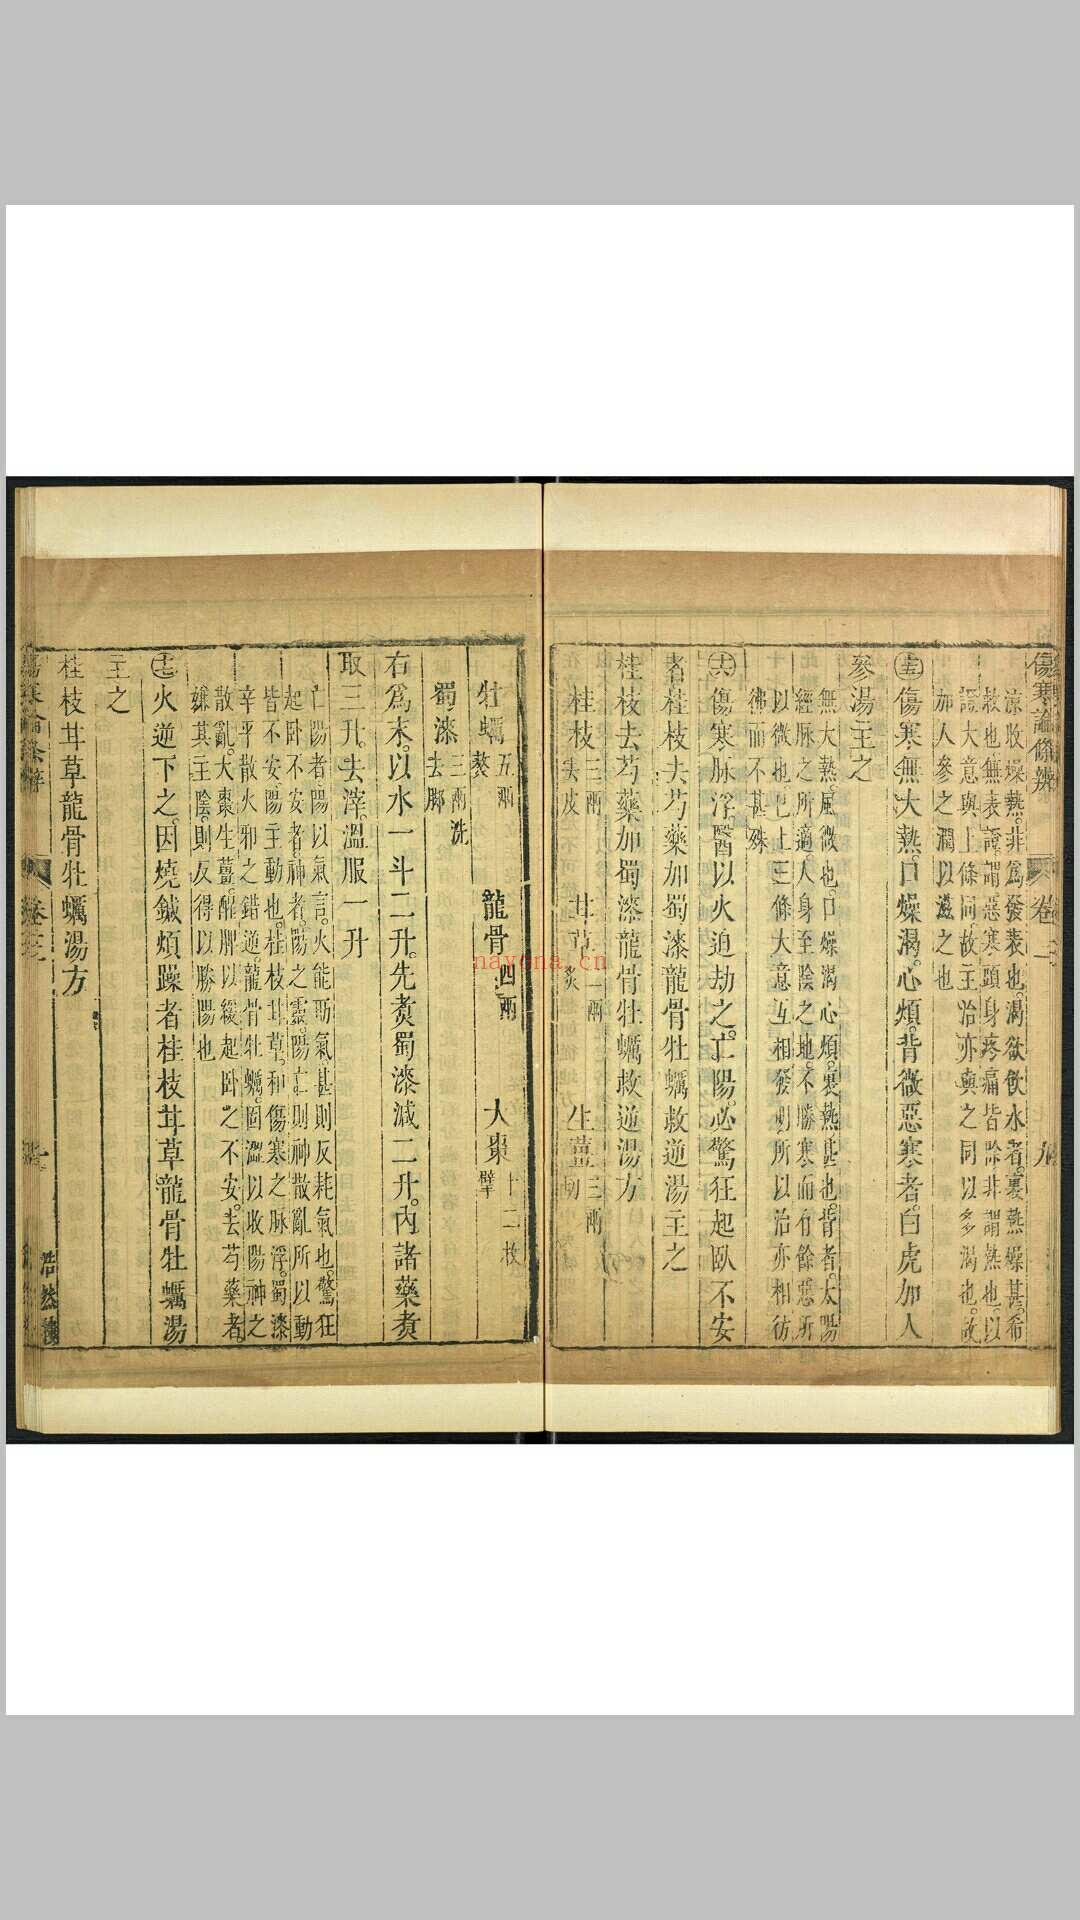 傷寒論條辨 卷二 九
涼收燥熱。非爲發表也。渴欲飲水者。裏熱燥甚。希
救也。無表證。謂惡寒頭身疼痛皆除。非謂熱也。以
證大意與上條同。故主治亦與之同。以多渴也。故
加人參之潤以滋之也
十五傷寒無大熱。口燥渴。心煩。背微惡寒者。白虎加人
參湯主之
無大熱。風微也。口燥渴心煩。裏熱甚也。背者。太陽
經脉之所適。人身至陰之地。不勝寒而有餘惡。所
以微也。已上三條大意互相發明。所以治亦相彷
彿而不甚殊
十六傷寒脉浮。醫以火迫劫之。亡陽。必驚狂。起臥不安
者。桂枝去芍藥加蜀漆龍骨牡蠣救逆湯主之
桂枝去芍藥加蜀漆龍骨牡蠣救逆湯方
桂枝三兩去皮 甘草一兩炙 生薑三兩切
牡蠣五兩熬 龍骨四兩 大棗十二枚擘
蜀漆三兩洗去腳
右爲末。以水一斗二升。先煑蜀漆減二升。內諸藥煑
取三升。去滓。溫服一升
亡陽者。陽以氣言。火能助氣。甚則反耗氣也。驚狂
起臥不安者。神者。陽之靈。陽亡則神散亂。所以動
皆不安。陽主動也。桂枝甘草。和傷寒之脉浮。蜀漆
辛平。散火邪之錯逆。龍骨牡蠣。固澀以收陽神之
散亂。大棗生薑。醒脾以緩起臥之不安。去芍藥者。
嫌其主陰。則反得以勝陽也
十七火逆下之。因燒鍼煩躁者。桂枝甘草龍骨牡蠣湯
主之
桂枝甘草龍骨牡蠣湯方
傷寒論條辨 卷二 浩然樓
nayona.cn